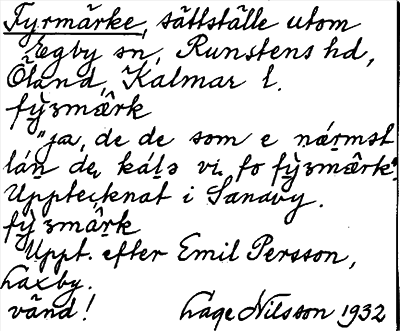 Fyrmärke, sättställe utom
Egby sn, Runstens hd,
Öland, Kalmar l.
fỳʒmæ̂rk
"ja, de de som e nǽrmst
lán de, kálə vi fo fỳʒmæ̂rk".
Upptecknat i Sandvy.
fỳʒmæ̂rk
Uppt. efter Emil Persson,
Laxby.
vänd! Lage Nilsson 1932